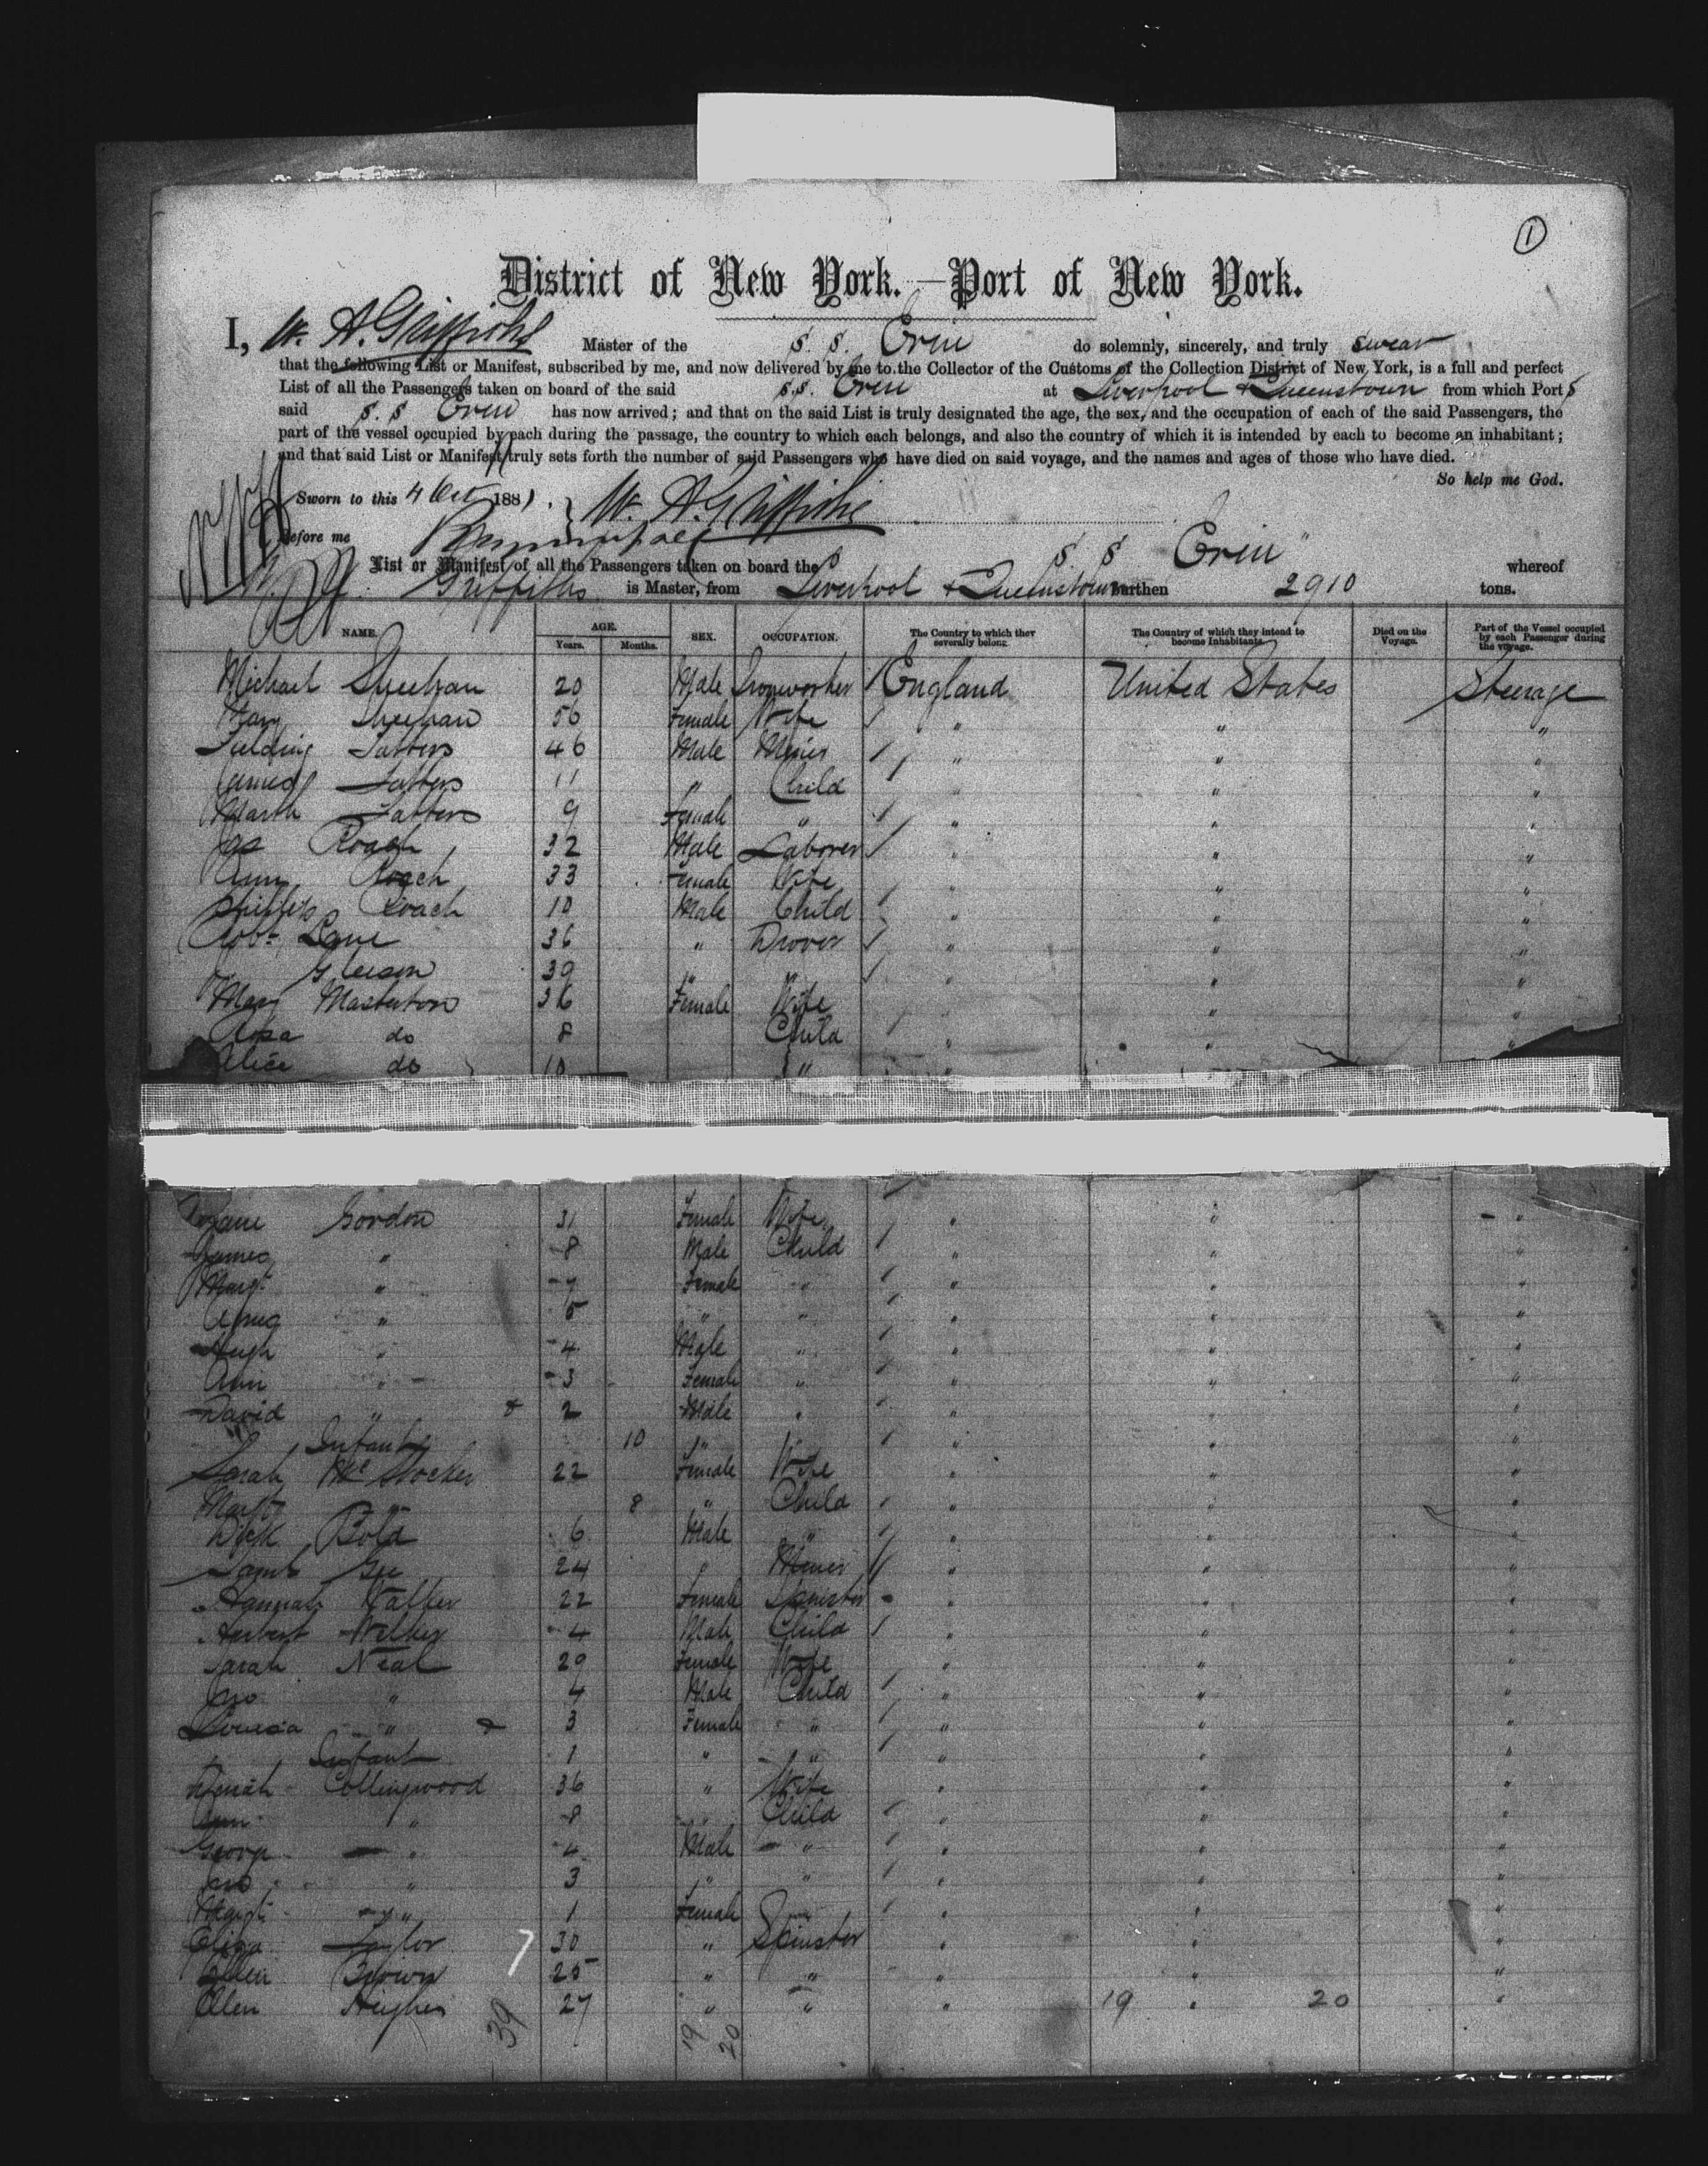 1
District of New York.—Port of New York.
I, W. A. Griffiths Master of the S. S. Erin do solemnly, sincerely, and truly swear
that the following List or Manifest, subscribed by me, and now delivered by me to the Collector of the Customs of the Collection District of New York, is a full and perfect
List of all the Passengers taken on board of the said S.S. Erin at Liverpool & Queenstown from which Port s
said S. S Erin has now arrived; and that on the said List is truly designated the age, the sex, and the occupation of each of the said Passengers, the
part of the vessel occupied by each during the passage, the country to which each belongs, and also the country of which it is intended by each to become an inhabitant;
and that said List or Manifest truly sets forth the number of said Passengers who have died on said voyage, and the names and ages of those who have died.
So help me God.
Sworn to this 4 Oct 1881. W. A. Griffiths
Before me
List or Manifest of all the Passengers taken on board the S S Erin whereof
Griffiths is Master, from Liverpool & Queenstown burthen 2910 tons.
NAME. AGE. Years. Months. SEX. OCCUPATION. The Country to which they severally belong. The Country of which they intend to become Inhabitants. Died on the Voyage. Part of the Vessel occupied by each Passenger during the voyage.
Michael Sheehan 20 Male Ironworker England United States Steerage
Mary Sheehan 56 Female Wife " " "
Fielding 46 Male Miner " " "
James 11 " Child " " "
9 Female " " " "
Jas Roach 32 Male Laborer " " "
Ann Roach 33 Female Wife " " "
Roach 10 Male Child " " "
Robt Lane 36 " Drover " " "
Gleeson 39 " " " " "
Mary Masterton 36 Female Wife " " "
Rosa do 8 Child " " "
Alice do 10 " " "
Jane Gordon 31 Female Wife " " "
James " 8 Male Child " " "
Margt " 7 Female " " " "
" 5 " " " " "
Hugh " 4 Male " " " "
Ann " 3 Female " " " "
David " & 2 Male " " " "
Infant 10 " " " " "
Sarah 22 Female Wife " " "
Margt " 8 " Child " " "
Dick Bold 6 Male " " " "
Saml Gee 24 " Miner " " "
Hannah Walker 22 Female Spinster " " "
Herbert Walker 4 Male Child " " "
Sarah Neal 29 Female Wife " " "
Jno " 4 Male Child " " "
Louisa " & 3 Female " " " "
Infant 1 " " " " "
Collingwood 36 " Wife " " "
Ann " 8 " Child " " "
George " 4 Male " " " "
Jno " 3 " " " " "
Margt " 1 Female " " " "
Eliza Taylor 30 " Spinster " " "
Ellen Brown 25 " " " " "
Ellen Hughes 27 " " " 19 " 20 "
39 19 20